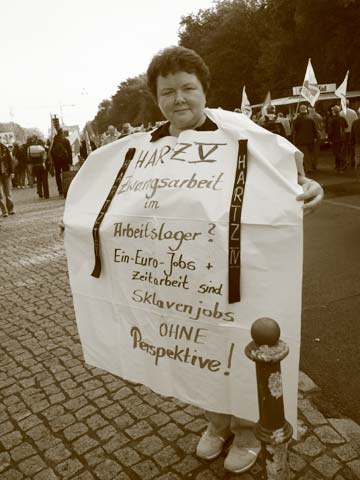 HARTZ V
Zwangsarbeit
im
Arbeitslager?
Ein-Euro-Jobs +
Zeitarbeit sind
Sklavenjobs
OHNE
Perspektive!
HARTZ IV